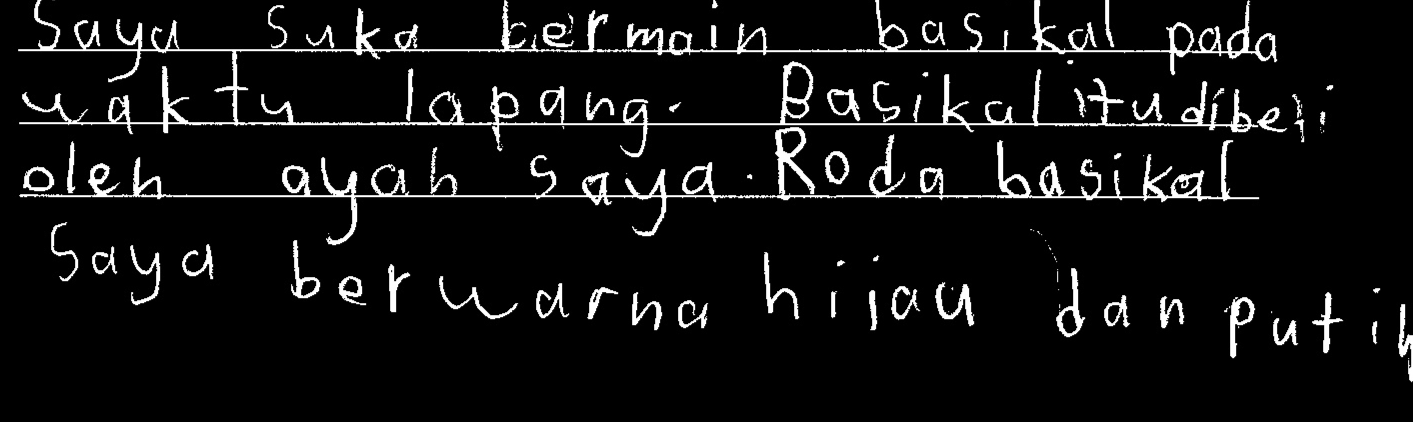 Saya suka bermain basikal pada
waktu lapang. Basikal itu dibeli
oleh ayah saya. Roda basikal
saya berwarna hijau dan putih